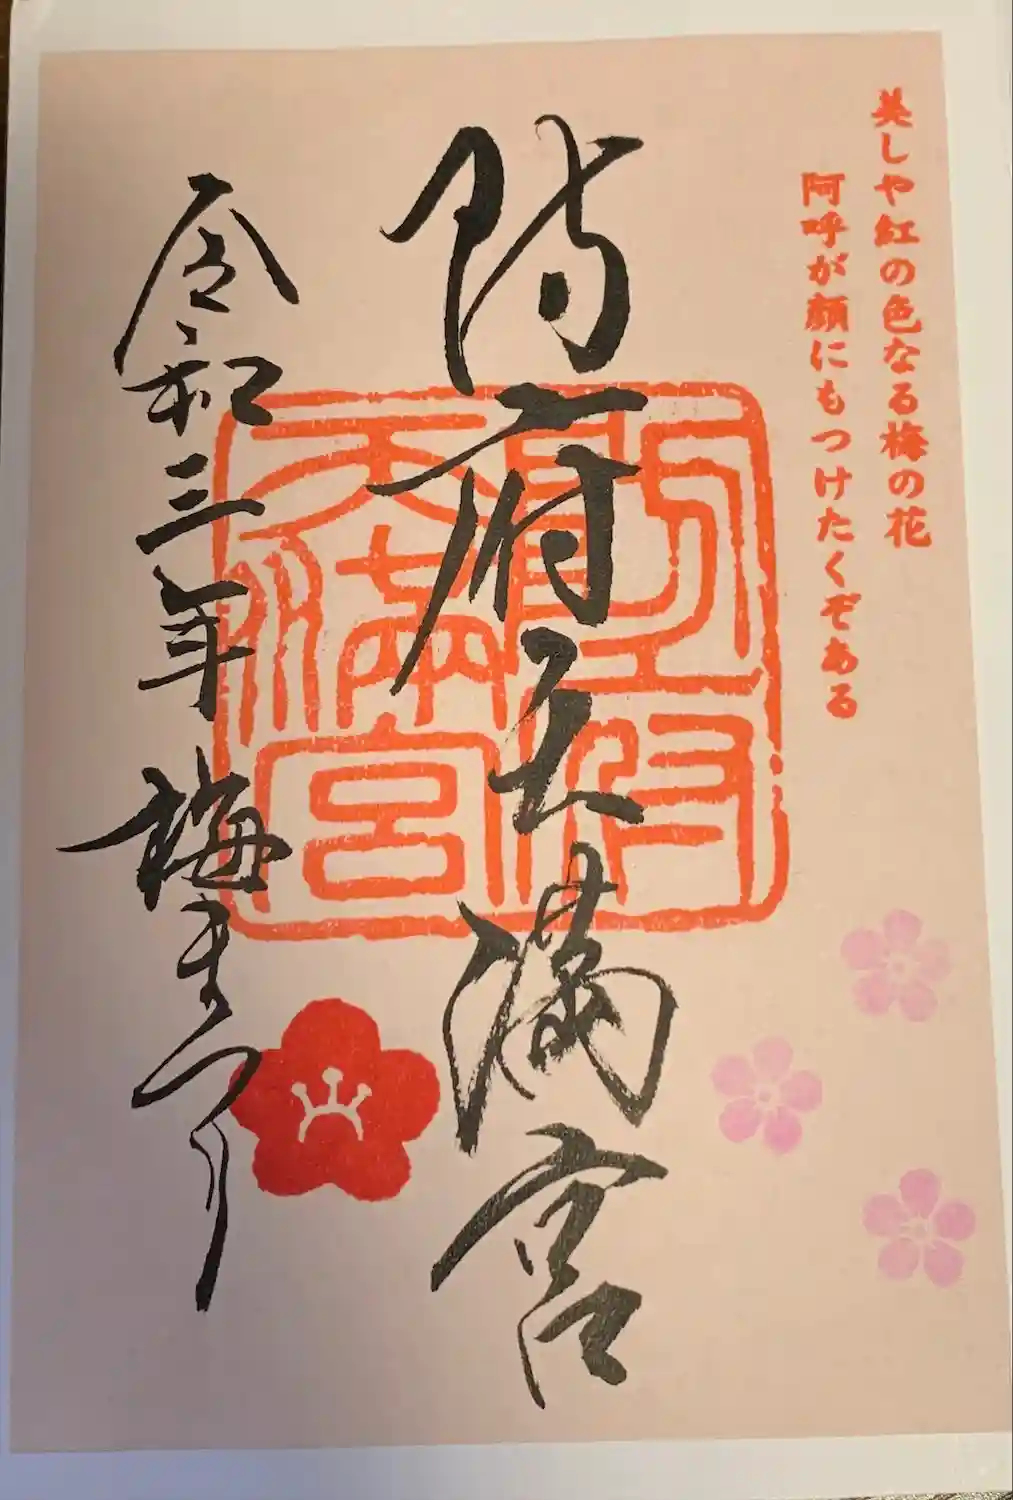 美しや紅の色なる梅の花
阿呼が顔にもつけたくぞある
防府天満宮
防府天満宮
令和三年 梅まつり